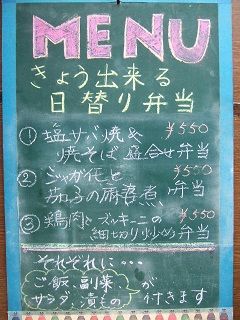 MENU
きょう出来る
日替り弁当
① 塩サバ焼&
¥550
焼そば盛合せ弁当
② ジャガ芋と
¥550
茄子の麻婆煮〃
③ 鶏肉とズッキーニの
¥550
細切り炒め弁当
それぞれに…
ご飯、副菜、が
サラダ、漬もの 付きます